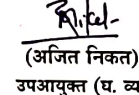 (अजित निकत)
उपआयुक्त (घ. व्य